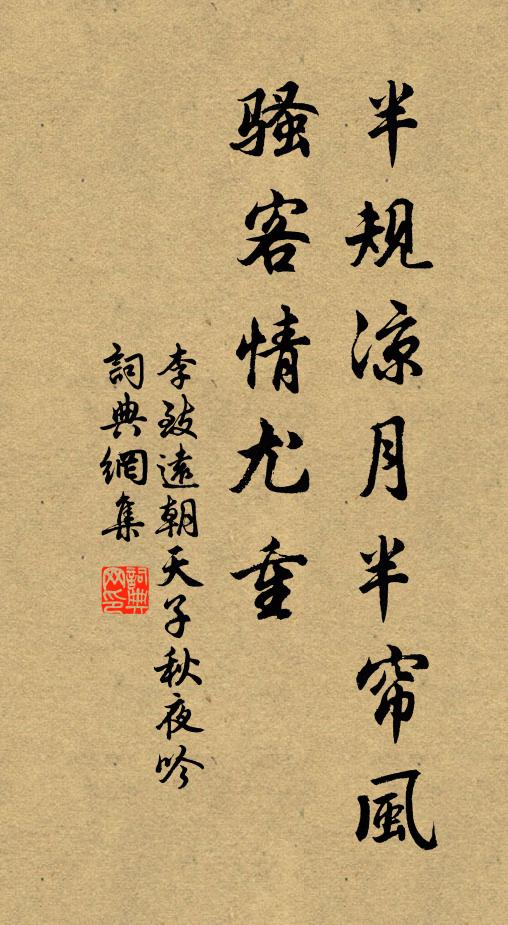 半規涼月半帘風
騷客情尤重
李致遠朝天子秋夜吟
詞典網集
詞典
网印